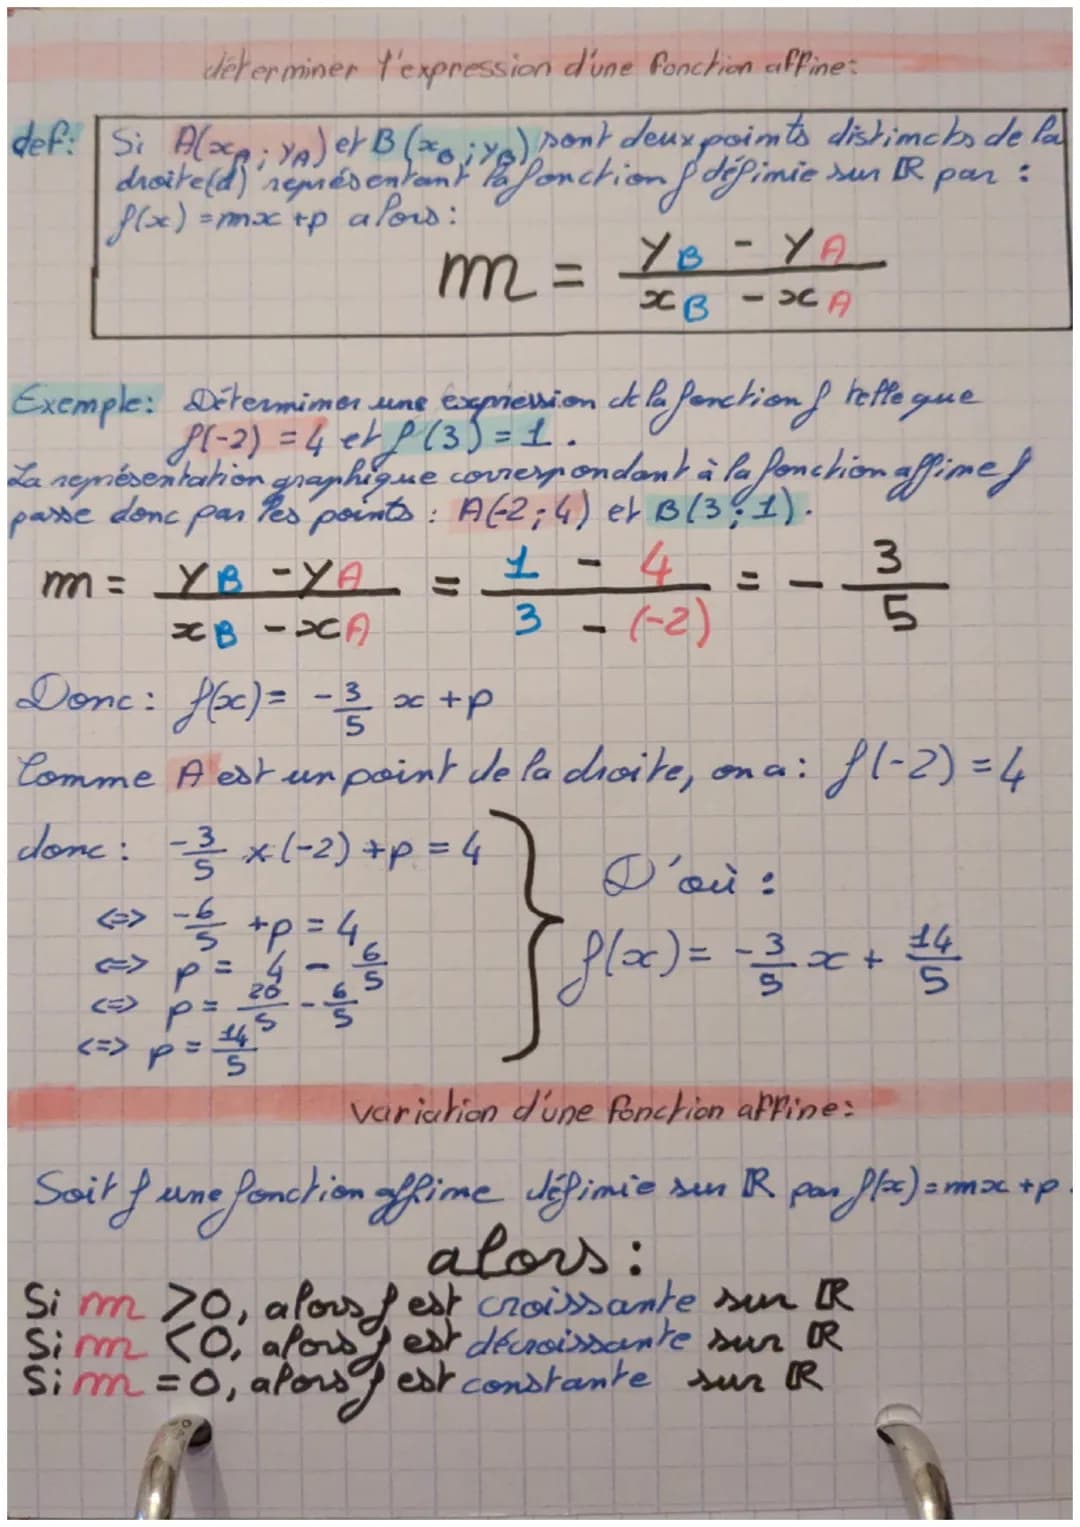 déterminer l'expression d'une fonction affine:
def: Si A(xA ; yA) et B (xB ; yB) sont deux points distincts de la
droite (d) représentant la fonction f définie sur ℝ par :
f(x) = mx + p alors :
m = (yB - yA) / (xB - xA)
Exemple: Déterminer une expression de la fonction f telle que
f(-2) = 4 et f(3) = 1.
La représentation graphique correspondant à la fonction affine f
passe donc par les points : A(-2 ; 4) et B(3 ; 1).
m = (yB - yA) / (xB - xA) = (1 - 4) / (3 - (-2)) = - 3/5
Donc : f(x) = -3/5 x + p
Comme A est un point de la droite, on a : f(-2) = 4
donc : -3/5 × (-2) + p = 4
<=> -6/5 + p = 4
<=> p = 4 - 6/5
<=> p = 20/5 - 6/5
<=> p = 14/5
D'où :
f(x) = -3/5 x + 14/5
variation d'une fonction affine:
Soit f une fonction affine définie sur ℝ par f(x) = mx + p.
alors :
Si m > 0, alors f est croissante sur ℝ
Si m < 0, alors f est décroissante sur ℝ
Si m = 0, alors f est constante sur ℝ